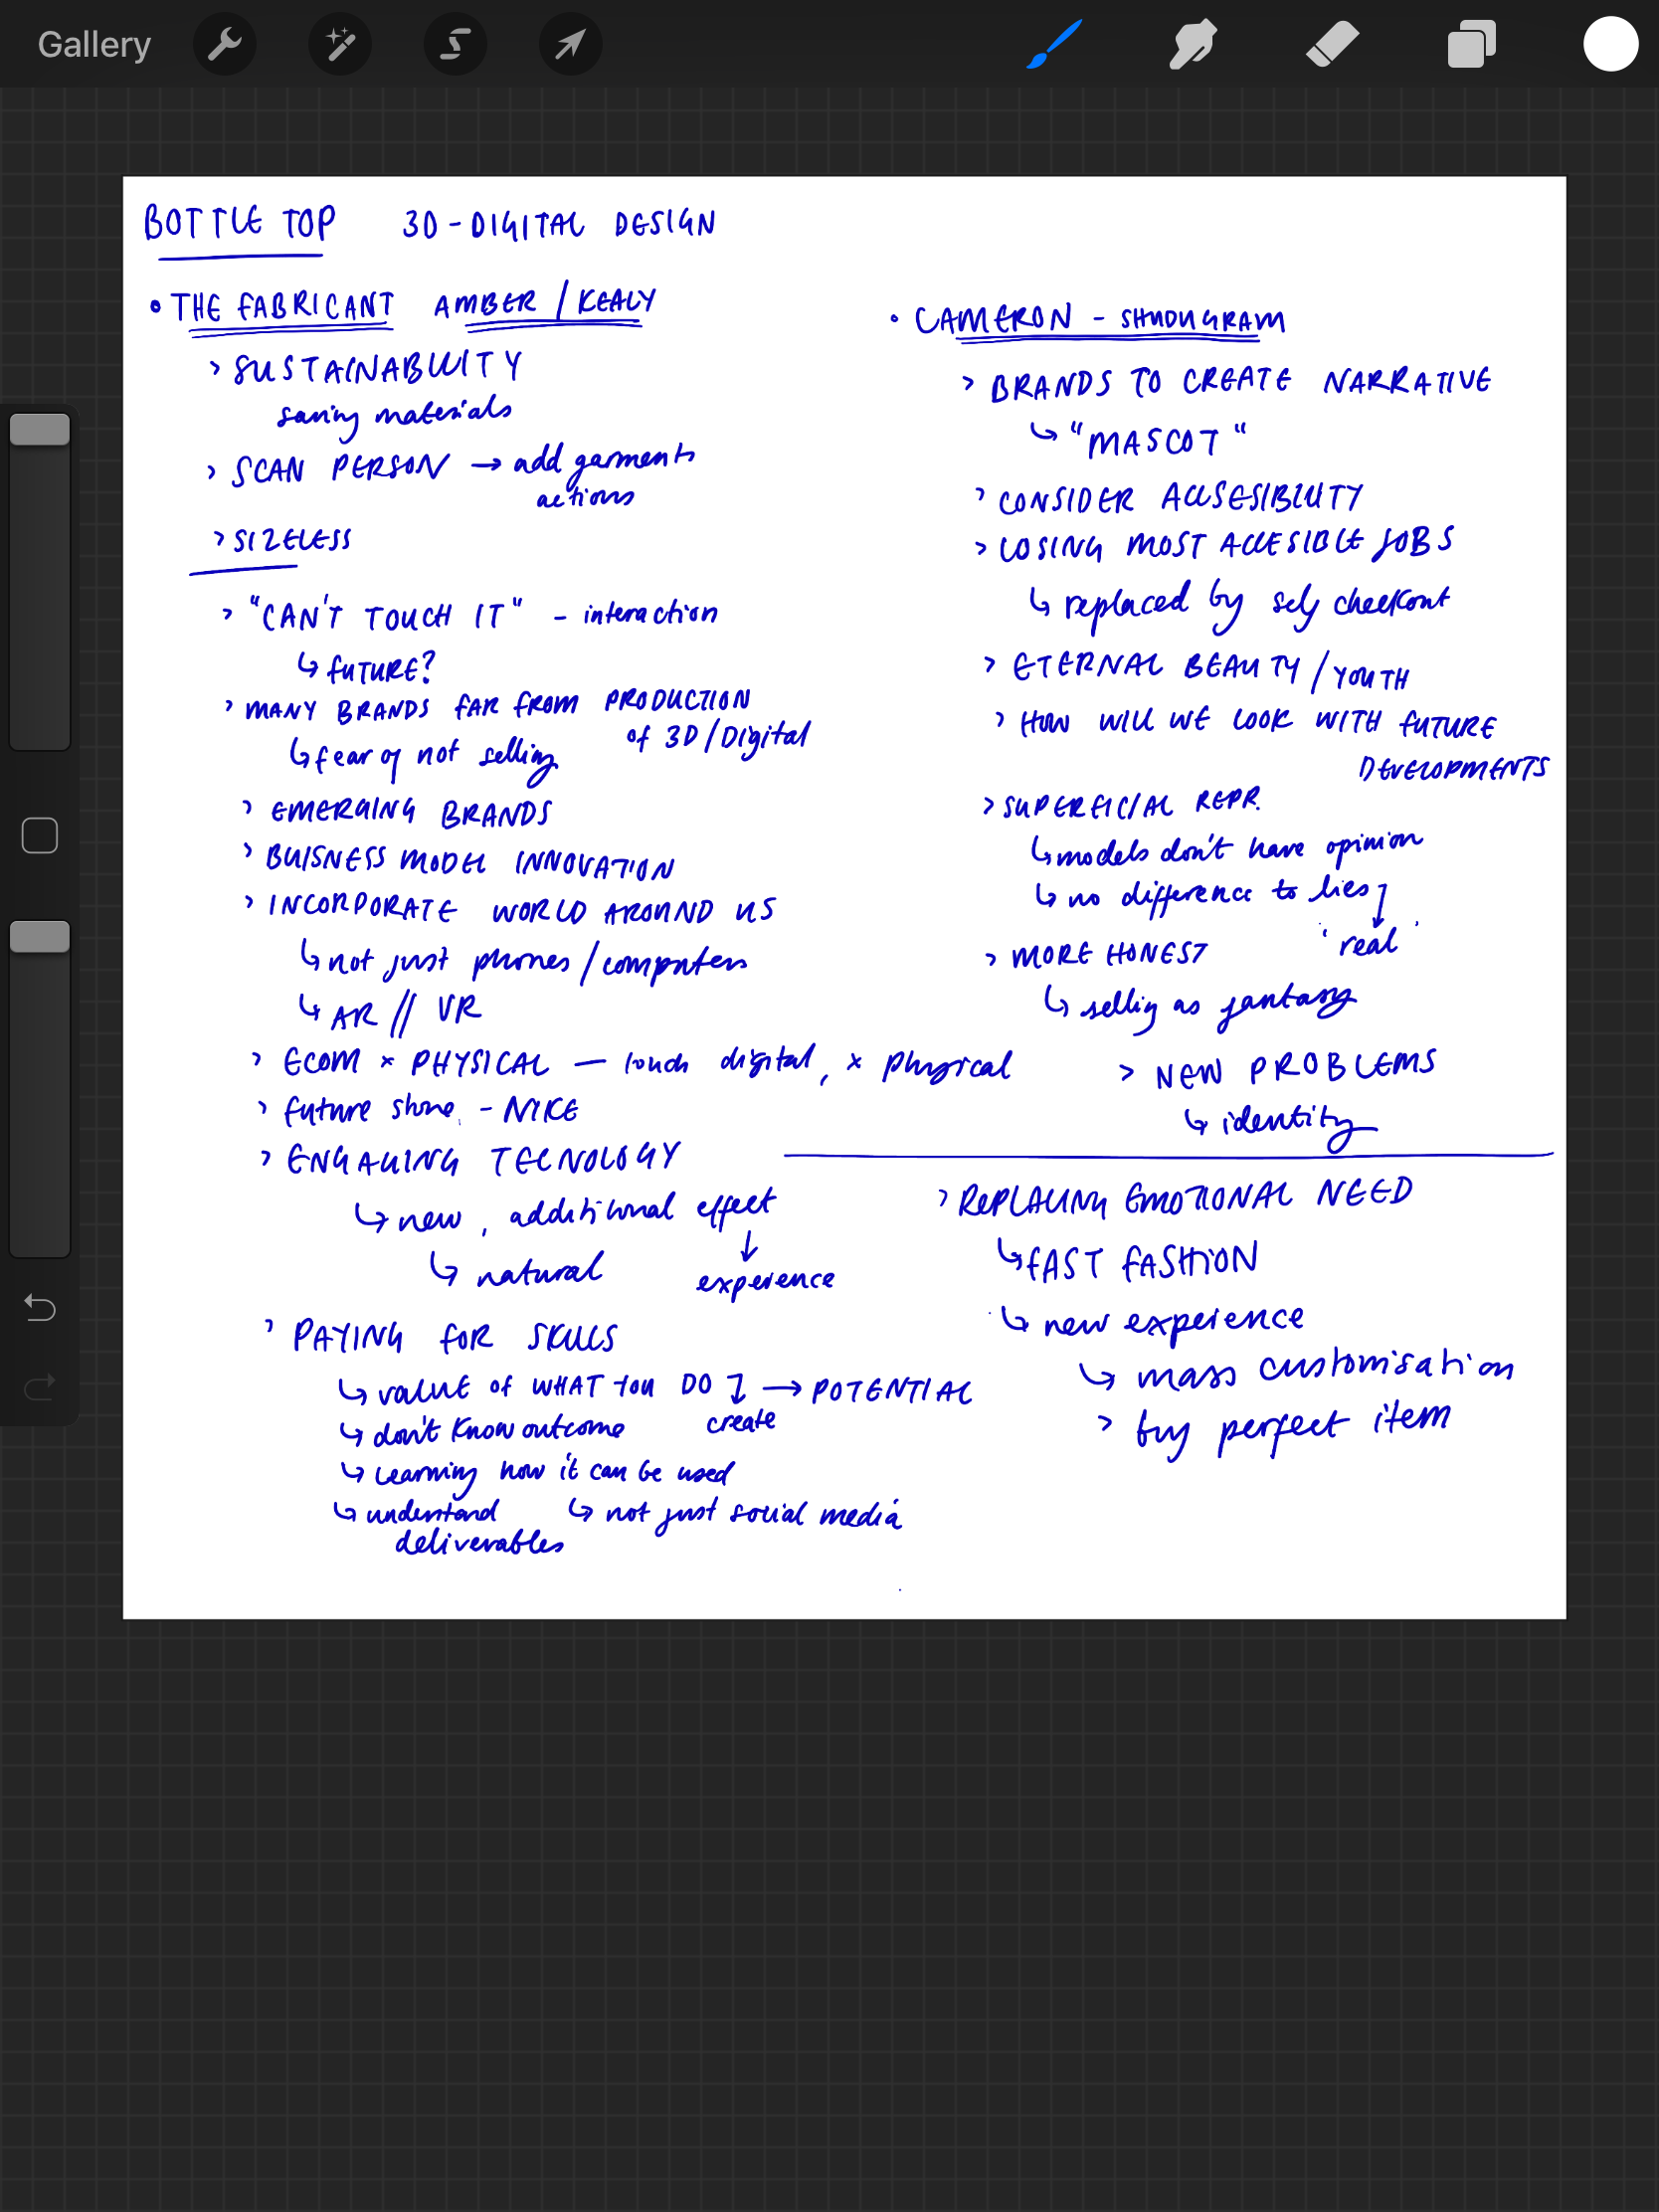 Gallery
BOTTLE TOP 3D-DIGITAL DESIGN
• THE FABRICANT AMBER / KEALY
> SUSTAINABILITY
saving materials
> SCAN PERSON → add garments
actions
> SIZELESS
> "CAN'T TOUCH IT" - interaction
↳ FUTURE?
> MANY BRANDS FAR FROM PRODUCTION
of 3D/Digital
↳ fear of not selling
> EMERGING BRANDS
> BUISNESS MODEL INNOVATION
> INCORPORATE WORLD AROUND US
↳ not just phones/computers
↳ AR // VR
> ECOM × PHYSICAL — touch digital, × physical
> future store - NIKE
> ENGAGING TECNOLOGY
↳ new, additional effect
↓
↳ natural experience
> PAYING FOR SKILLS
↳ VALUE OF WHAT YOU DO → POTENTIAL
create
↳ don't know outcome
↳ learning how it can be used
↳ understand ↳ not just social media
deliverables
• CAMERON - SHUDUGRAM
> BRANDS TO CREATE NARRATIVE
↳ "MASCOT"
> CONSIDER ACCSESIBILITY
> LOSING MOST ACCESIBLE JOBS
↳ replaced by self checkout
> ETERNAL BEAUTY / YOUTH
> HOW WILL WE LOOK WITH FUTURE
DEVELOPMENTS
> SUPERFICIAL REPR.
↳ models don't have opinion
↳ no difference to lies
↓
'real'
> MORE HONEST
↳ selling as fantasy
> NEW PROBLEMS
↳ identity
> REPLACING EMOTIONAL NEED
↳ FAST FASHION
↳ new experience
↳ mass customisation
> buy perfect item